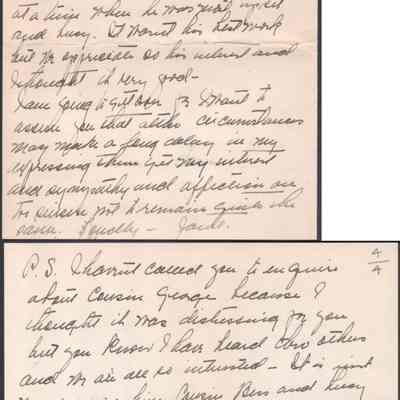 at a time when he was
and busy. It wasn't his best work
but we appreciate so his interest and
I thought it very good -
I am going to for I want to
assure you that altho circumstances
may make a long delay in my
expressing them yet my interest
and sympathy and affection are
too sincere not to remain quite the
same. Fondly - Jane.
P.S. I haven't called you to enquire
about Cousin George because I
thought it was distressing for you
but you know I have heard thro others
and we are all so interested - It is just
him Cousin Bess and
4/4